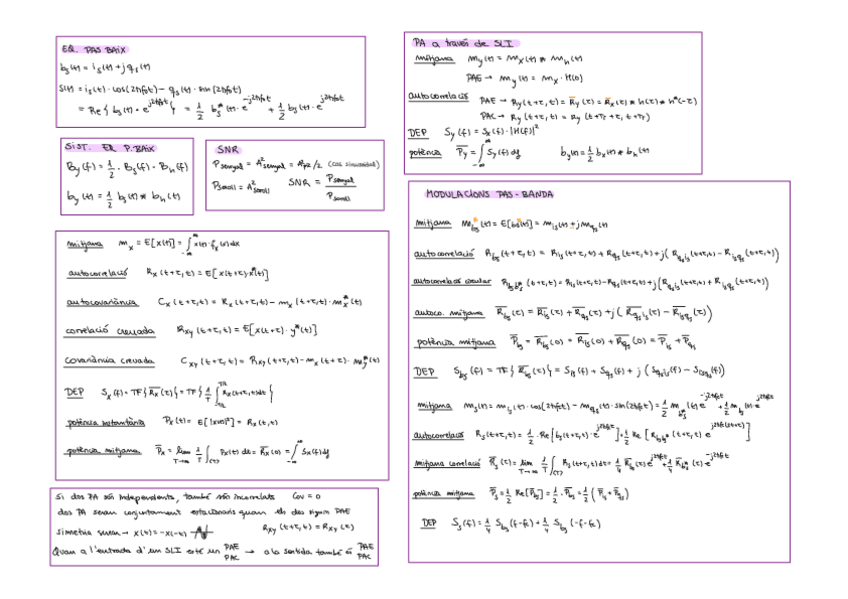 EQ. PAS BAIX
b_s(t) = i_s(t) + j q_s(t)
s(t) = i_s(t)·cos(2πf_0t) - q_s(t)·sin(2πf_0t)
= Re{b_s(t)·e^{j2πf_0t}} = 1/2 b_s^*(t)·e^{-j2πf_0t} + 1/2 b_s(t)·e^{j2πf_0t}
SIST. EQ P.BAIX
B_y(f) = 1/2·B_s(f)·B_h(f)
b_y(t) = 1/2 b_s(t) * b_h(t)
SNR
P_senyal = A²_senyal = A²_p/2 (cas sinusoidal)
P_soroll = A²_soroll SNR = P_senyal/P_soroll
mitjana m_x = E[x(t)] = ∫_{-∞}^{∞} x(t)·f_x(x)dx
autocorrelació R_x(t+τ,t) = E[x(t+τ)·x^*(t)]
autocovariància C_x(t+τ,t) = R_x(t+τ,t) - m_x(t+τ,t)·m_x^*(t)
correlació creuada R_xy(t+τ,t) = E[x(t+τ)·y^*(t)]
covariància creuada C_xy(t+τ,t) = R_xy(t+τ,t) - m_x(t+τ)·m_y^*(t)
DEP S_x(f) = TF{R̅_x(τ)} = TF{1/T ∫_{-T/2}^{T/2} R_x(t+τ,t)dt}
potència instantània P_x(t) = E[|x(t)|²] = R_x(t,t)
potència mitjana P̅_x = lim_{T→∞} 1/T ∫_{(T)} P_x(t)dt = R̅_x(0) = ∫_{-∞}^{∞} S_x(f)df
Si dos PA són independents, també són incorrelats Cov = 0
dos PA seran conjuntament estacionaris quan els dos siguin PAE
simetria senar → x(t) = -x(-t) R_xy(t+τ,t) = R_xy(τ)
Quan a l'entrada d'un SLI esté un PAE PAC → a la sortida també és PAE PAC
PA a través de SLI
mitjana m_y(t) = m_x(t) * m_h(t)
PAE → m_y(t) = m_x·H(0)
autocorrelació PAE → R_y(t+τ,t) = R̅_y(τ) = R̅_x(τ) * h(τ) * h^*(-τ)
PAC → R_y(t+τ,t) = R_y(t+T_F+τ, t+T_F)
DEP S_y(f) = S_x(f)·|H(f)|²
potència P̅_y = ∫_{-∞}^{∞} S_y(f)df b_y(t) = 1/2 b_x(t) * b_h(t)
MODULACIONS PAS-BANDA
mitjana m_{b_s}^*(t) = E[b_s^*(t)] = m_{i_s}(t) + j m_{q_s}(t)
autocorrelació R_{b_s}(t+τ,t) = R_{i_s}(t+τ,t) + R_{q_s}(t+τ,t) + j(R_{q_s i_s}(t+τ,t) - R_{i_s q_s}(t+τ,t))
autocorrelació circular R_{b_s b_s^*}(t+τ,t) = R_{i_s}(t+τ,t) - R_{q_s}(t+τ,t) + j(R_{q_s i_s}(t+τ,t) + R_{i_s q_s}(t+τ,t))
autoco. mitjana R̅_{b_s}(τ) = R̅_{i_s}(τ) + R̅_{q_s}(τ) + j(R̅_{q_s i_s}(τ) - R̅_{i_s q_s}(τ))
potència mitjana P̅_{b_s} = R̅_{b_s}(0) = R̅_{i_s}(0) + R̅_{q_s}(0) = P̅_{i_s} + P̅_{q_s}
DEP S_{b_s}(f) = TF{R̅_{b_s}(τ)} = S_{i_s}(f) + S_{q_s}(f) + j(S_{q_s i_s}(f) - S_{i_s q_s}(f))
mitjana m_s(t) = m_{i_s}(t)·cos(2πf_0t) - m_{q_s}(t)·sin(2πf_0t) = 1/2 m_{b_s}^*(t) e^{-j2πf_0t} + 1/2 m_{b_s}(t)·e^{j2πf_0t}
autocorrelació R_s(t+τ,t) = 1/2·Re[b_s(t+τ,t)·e^{j2πf_0τ}] + 1/2 Re[R_{b_s b_s^*}(t+τ,t) e^{j2πf_0(2t+τ)}]
mitjana correlació R̅_s(τ) = lim_{T→∞} 1/T ∫_{(T)} R_s(t+τ,t)dt = 1/4 R̅_{b_s}(τ) e^{j2πf_0τ} + 1/4 R̅_{b_s}^*(τ) e^{-j2πf_0τ}
potència mitjana P̅_s = 1/2 Re[P̅_{b_s}] = 1/2·P̅_{b_s} = 1/2(P̅_{i_s} + P̅_{q_s})
DEP S_s(f) = 1/4 S_{b_s}(f-f_0) + 1/4 S_{b_s}(-f-f_0)